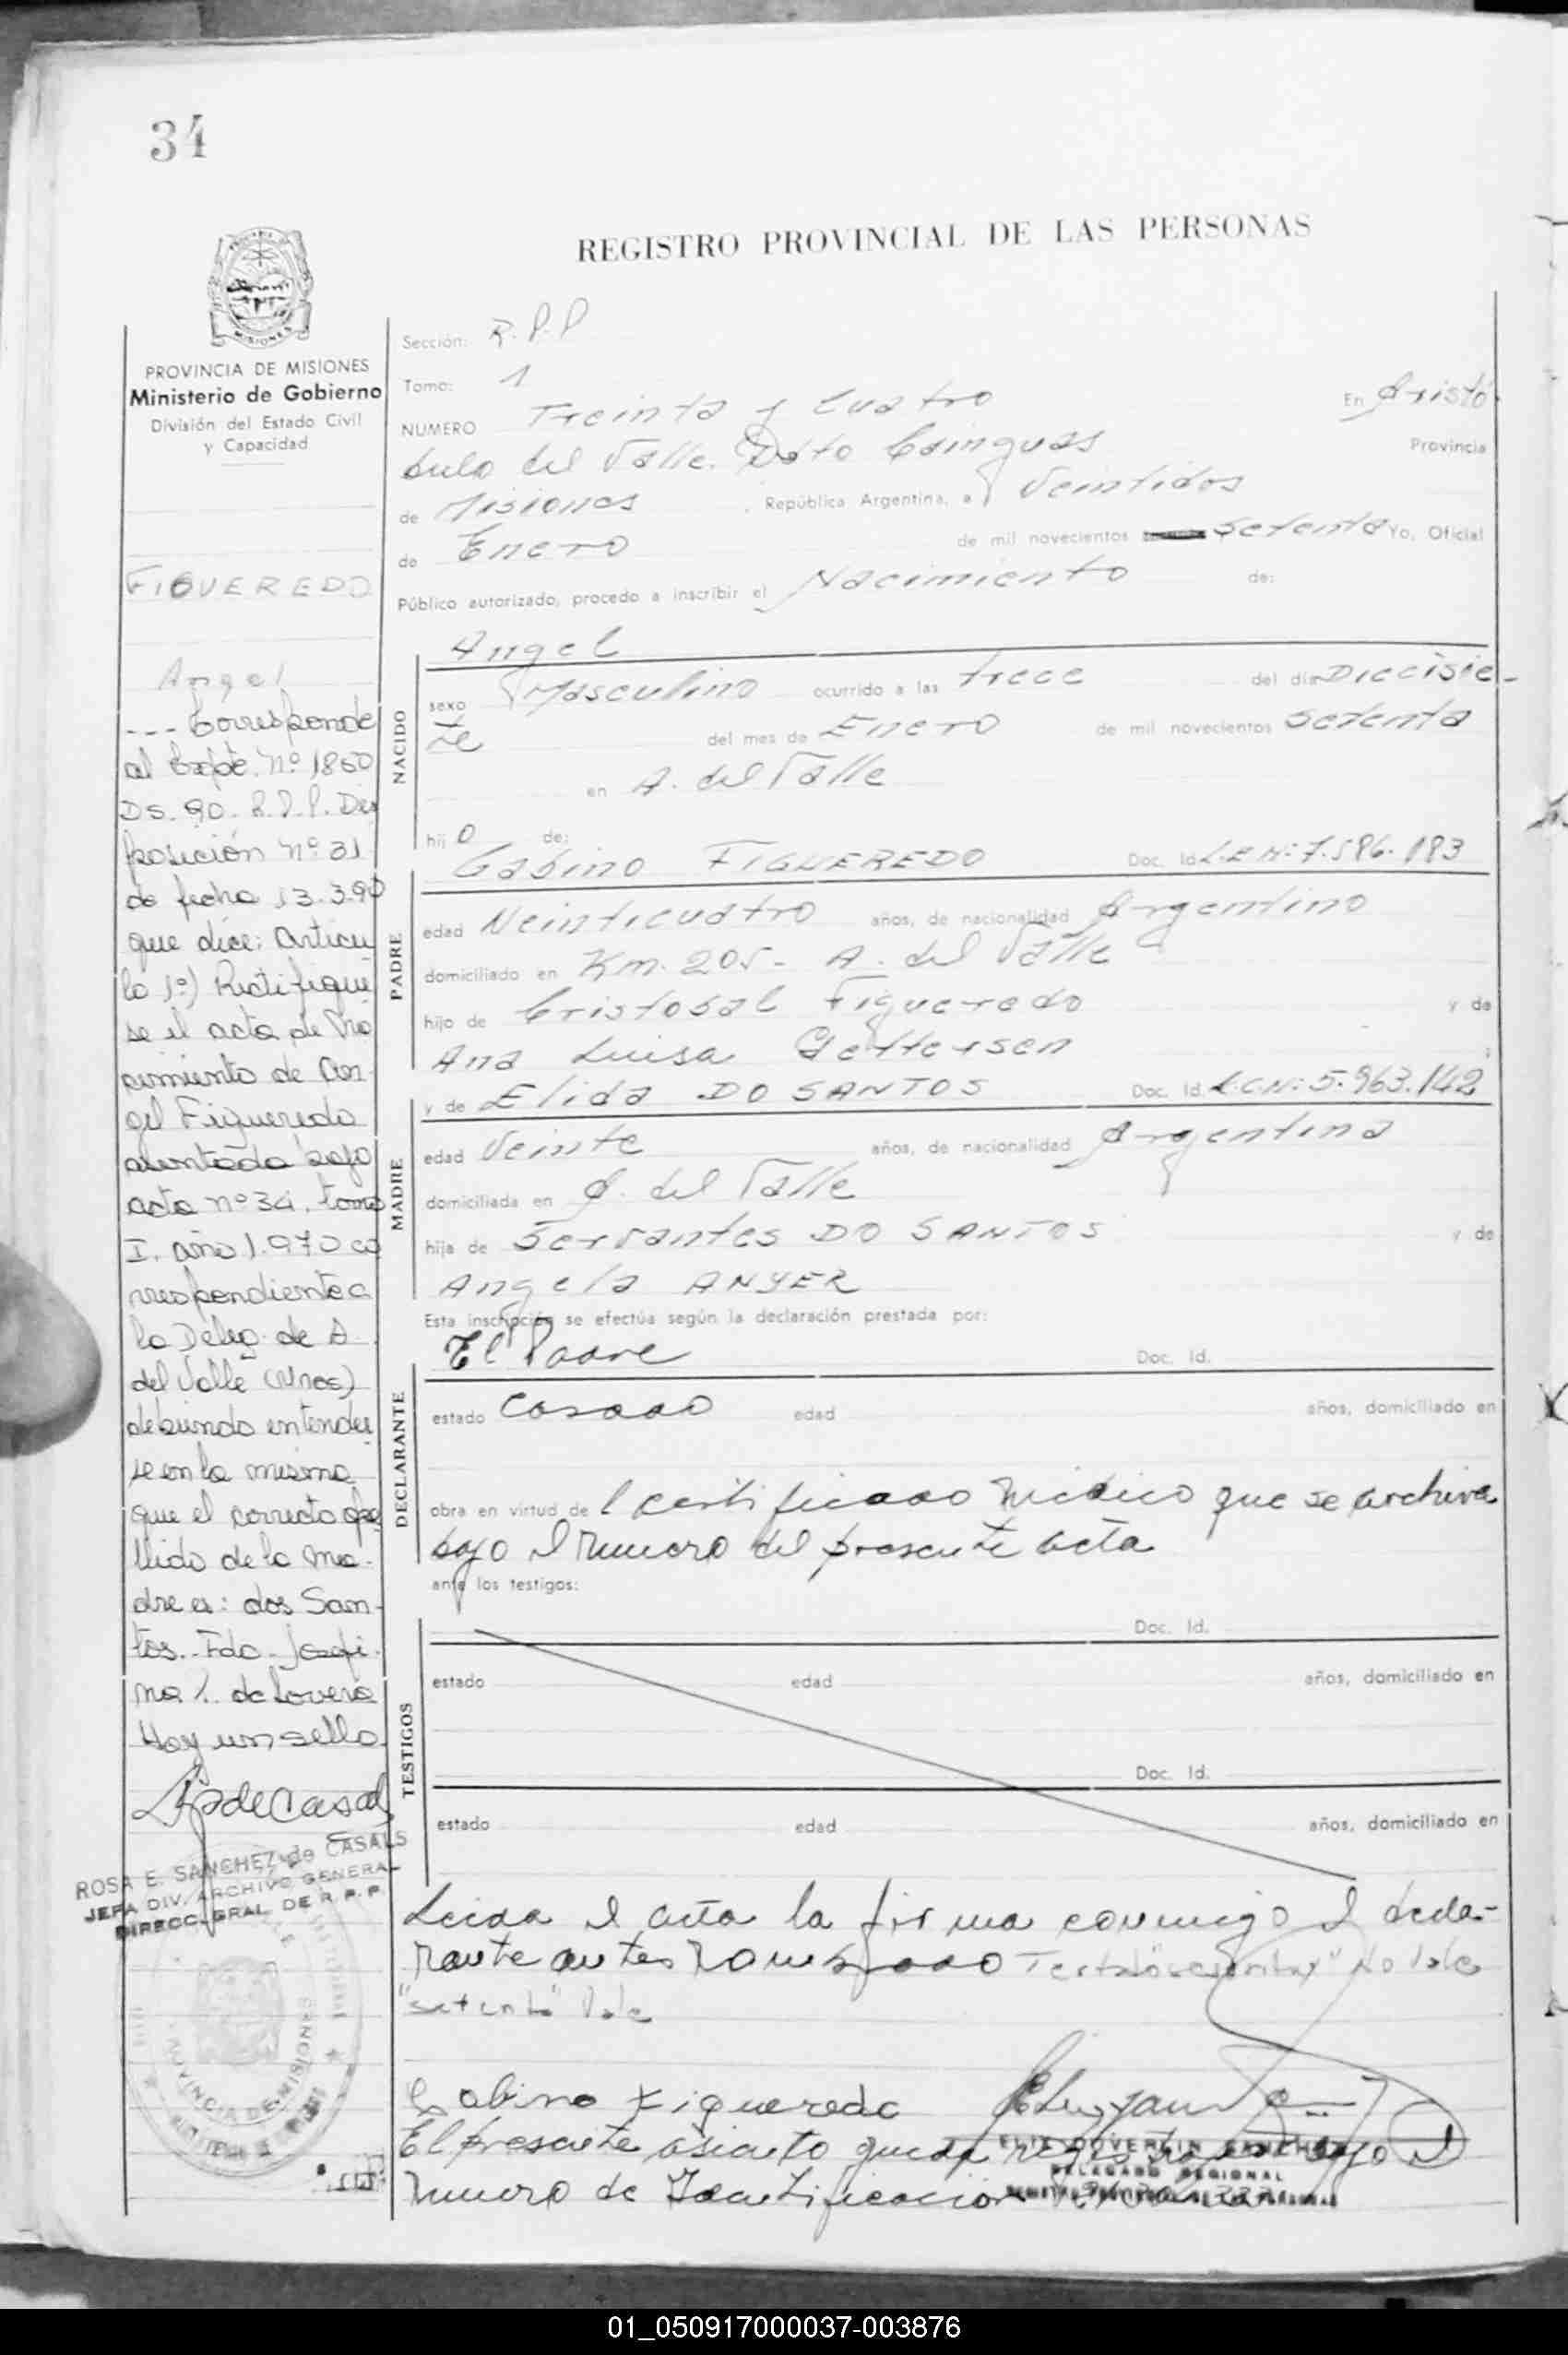 34
REGISTRO PROVINCIAL DE LAS PERSONAS
MISIONES
PROVINCIA DE MISIONES
Ministerio de Gobierno
División del Estado Civil
y Capacidad
FIGUEREDO
Angel
--- Corresponde
al Expte. Nº 1850
DS. 90. R.P.P. Dis
posición nº 31
de fecha 13.3.90
que dice: Articu
lo 1º) Rectifique
se el acta de Na
cimiento de An-
gel Figueredo
asentada bajo
acta nº 34. tomo
I. año 1.970 co
rrespondiente a
la Deleg. de A.
del Valle (Mnes)
debiendo entender
se en la misma
que el correcto ape
llido de la ma-
dre es: dos San-
tos. Fdo. Josefi-
na . de Lovera
Hay un sello
ROSA E. SANCHEZ de CASALS
JEFA DIV. ARCHIVO GENERAL
DIRECC. GRAL DE R.P.P.
PROVINCIA DE MISIONES
Sección: R.P.P
Tomo: 1
NUMERO Treinta y Cuatro En Aristó
bulo del Valle. Dpto Cainguas Provincia
de Misiones , República Argentina, a Veintidos
de Enero de mil novecientos setenta Yo, Oficial
Público autorizado, procedo a inscribir el Nacimiento de:
NACIDO
Angel
sexo Masculino ocurrido a las trece del día Diecisie-
te del mes de Enero de mil novecientos setenta
en A. del Valle
hij o de:
PADRE
Gabino FIGUEREDO Doc. Id. L.E.N: 7.586.183
edad Veinticuatro años, de nacionalidad Argentino
domiciliado en Km. 205- A. del Valle
hijo de Cristobal Figueredo y de
Ana Luisa
MADRE
y de Elida DO SANTOS Doc. Id. L.C.N: 5.963.142
edad Veinte años, de nacionalidad Argentina
domiciliada en A. del Valle
hija de Servantes DO SANTOS y de
Angela ANYER
Esta inscripción se efectúa según la declaración prestada por:
DECLARANTE
El Padre Doc. Id.
estado casado edad años, domiciliado en
obra en virtud de l certificado médico que se archiva
bajo el número del presente acta
ante los testigos:
TESTIGOS
Doc. Id.
estado edad años, domiciliado en
Doc. Id.
estado edad años, domiciliado en
Leida el acta la firma conmigo el decla-
rante antes nombrado Testado No Vale
"setenta" Vale
Gabino Figueredo
El presente asiento queda registrado bajo el
número de Identificación
DELEGADO REGIONAL
01_050917000037-003876